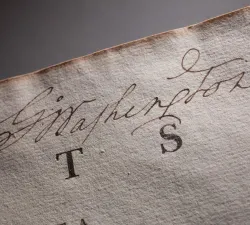 G:Washington
T S